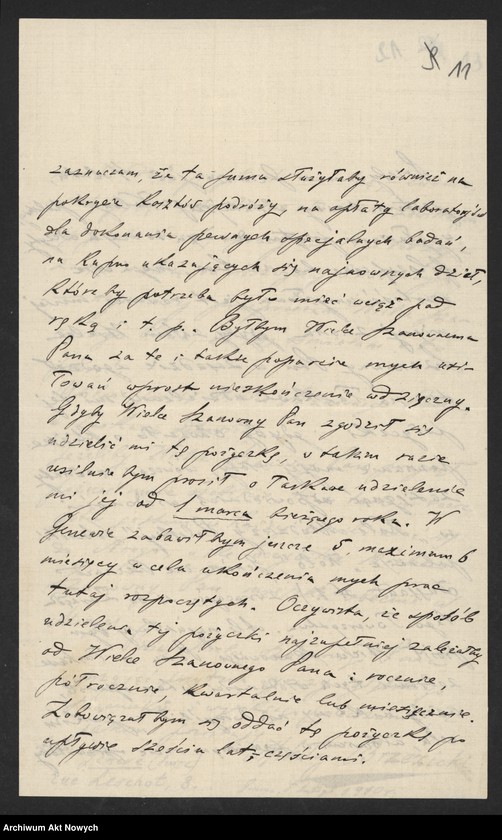 11
zaznaczam, że ta suma służyłaby również na
pokrycie kosztów podróży, na opłatę laboratoryjów
dla dokonania pewnych specjalnych badań,
na kupno ukazujących się najnowszych dzieł,
które by potrzeba było mieć wciąż pod
ręką i t. p. Byłbym Wielce Szanownemu
Panu za tę i łaskę poparcia mych usi-
łowań wprost nieskończenie wdzięczny.
Gdyby Wielce Szanowny Pan zgodził się
udzielić mi tę pożyczkę, w takim razie
usilnie bym prosił o łaskawe udzielenie
mi jej od 1 marca bieżącego roku. W
Genewie zabawiłbym jeszcze 5, maximum 6
miesięcy w celu ukończenia mych prac
tutaj rozpoczętych. Oczywista, że sposób
udzielenia tej pożyczki najzupełniej zależałby
od Wielce Szanownego Pana: rocznie,
półrocznie, kwartalnie lub miesięcznie.
Zobowiązałbym się oddać tę pożyczkę po
upływie sześciu lat, częściami.
Archiwum Akt Nowych